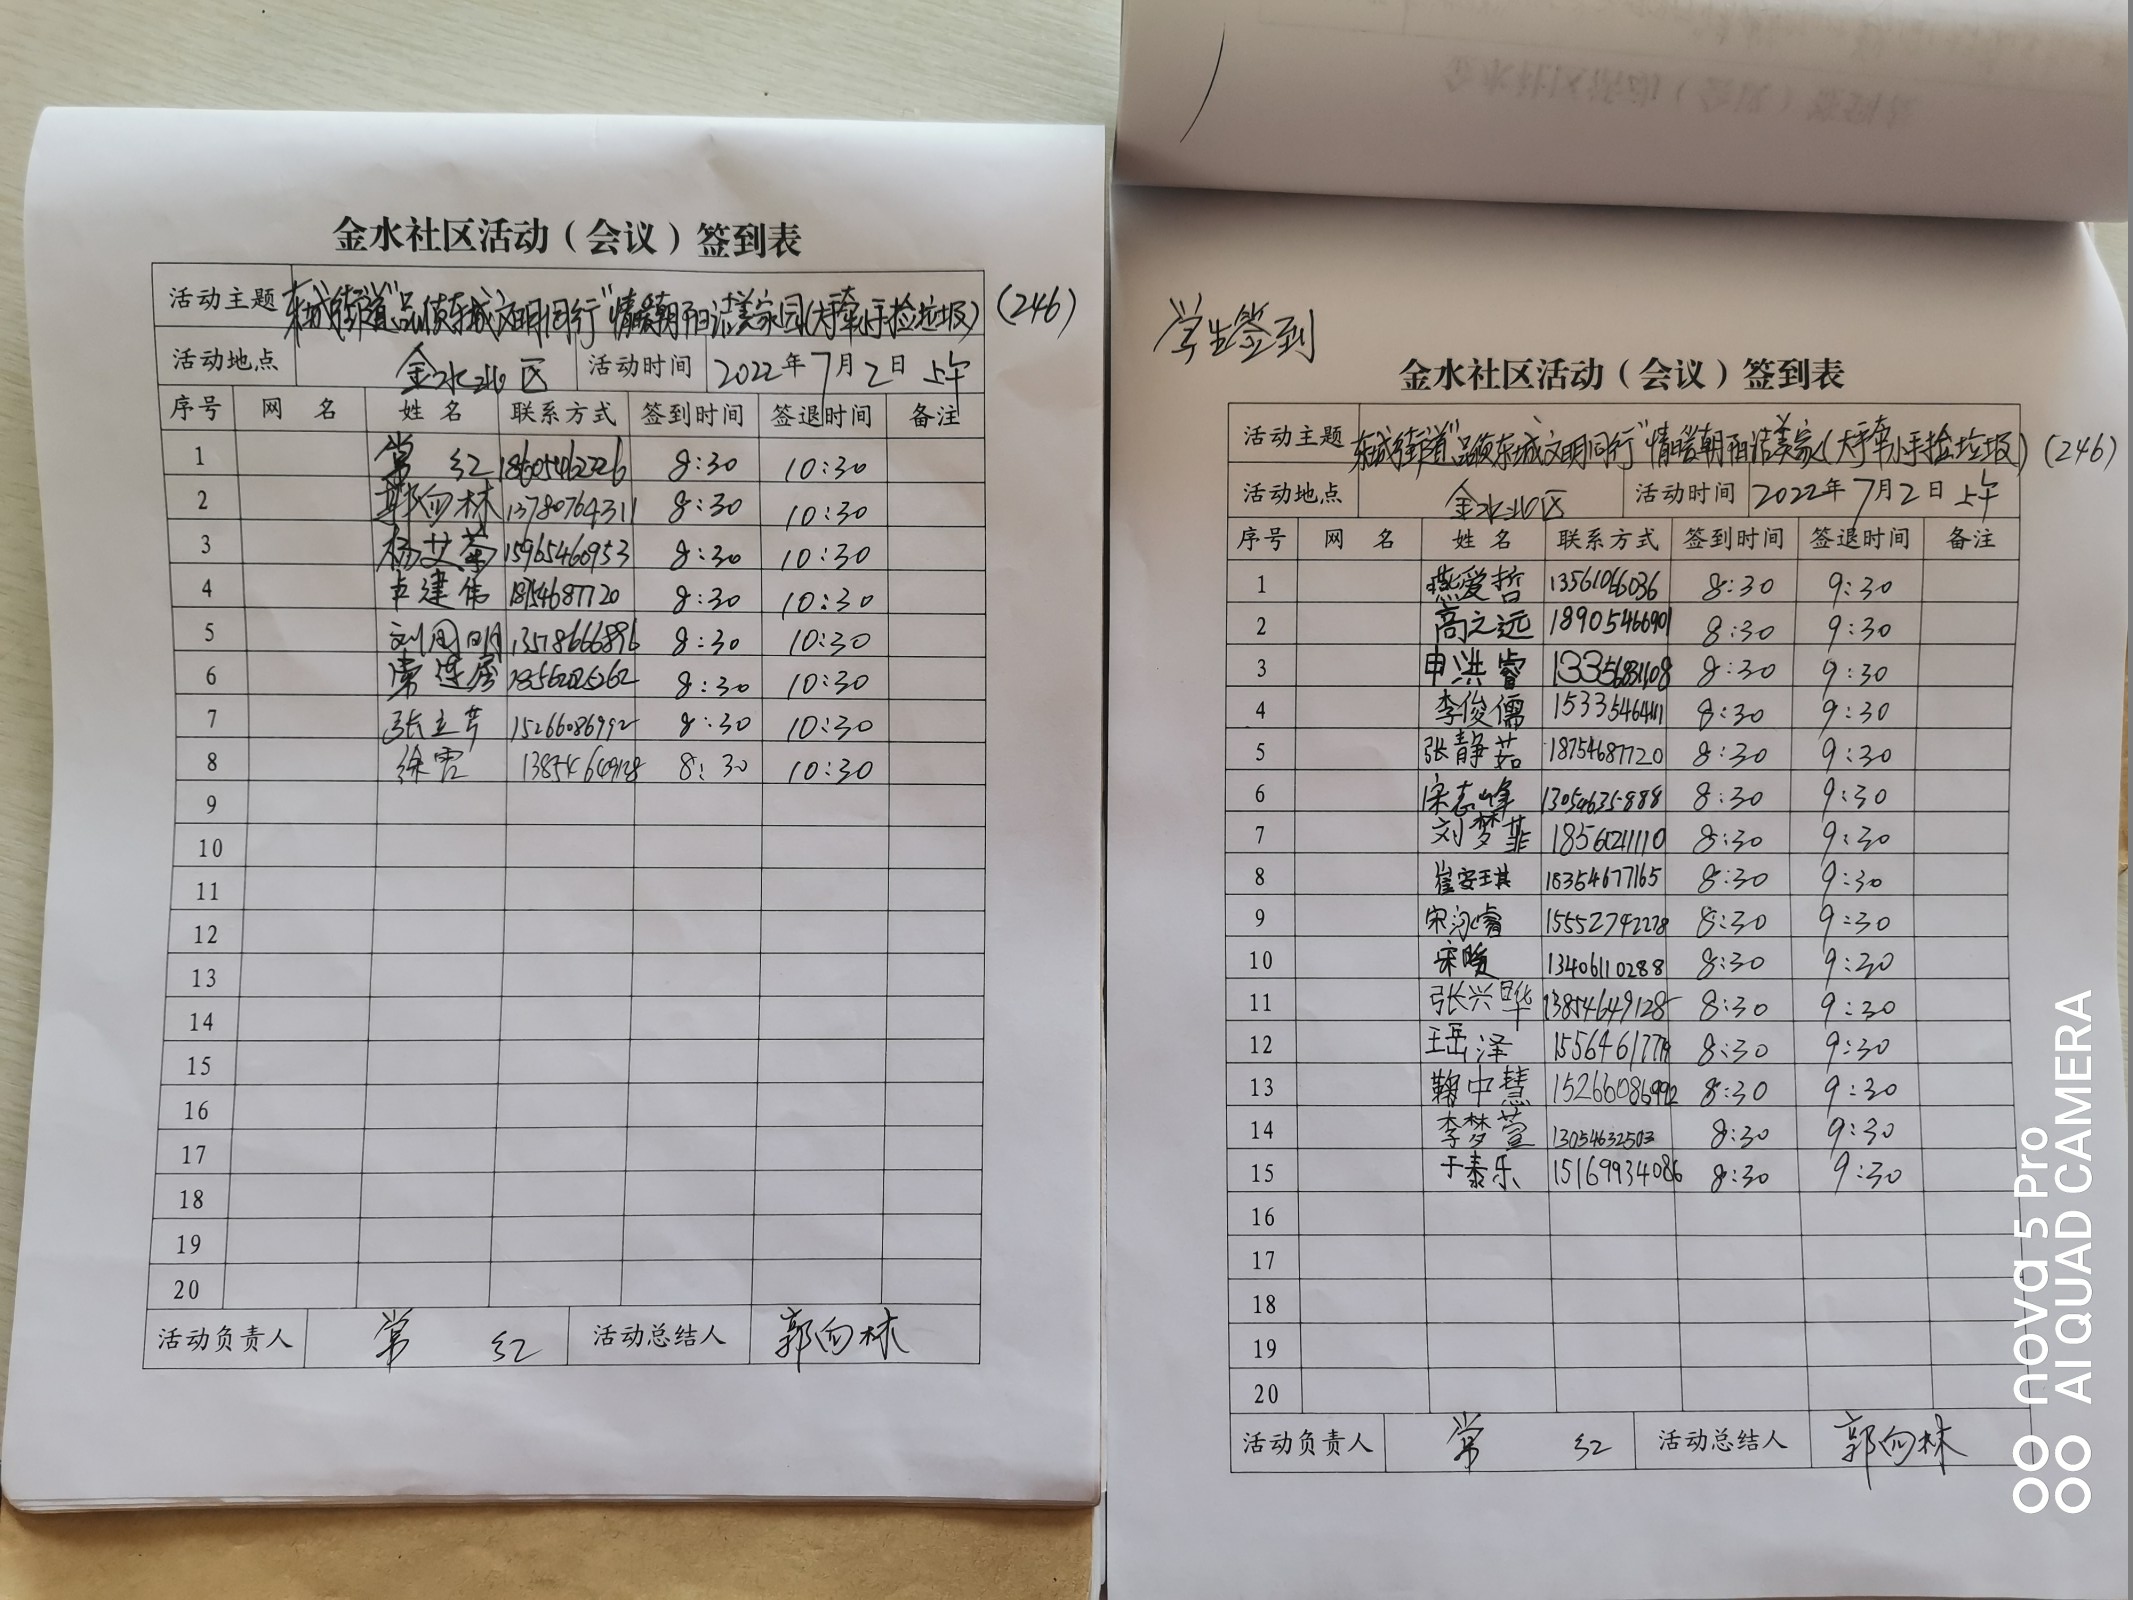 金水社区活动（会议）签到表
活动主题 东城街道"品质东城文明同行"情暖朝阳洁美家园(大手牵小手捡垃圾) (246)
活动地点 金水北区 活动时间 2022年7月2日 上午
序号 网 名 姓 名 联系方式 签到时间 签退时间 备注
1 常 红 18605462226 8:30 10:30
2 郭向林 13780764311 8:30 10:30
3 杨艾荃 15965460953 8:30 10:30
4 卢建伟 18754687720 8:30 10:30
5 刘周明 8:30 10:30
6 8:30 10:30
7 张立芹 15266086992 8:30 10:30
8 徐雪 13854649128 8:30 10:30
9
10
11
12
13
14
15
16
17
18
19
20
活动负责人 常 红 活动总结人 郭向林
学生签到
金水社区活动（会议）签到表
活动主题 东城街道"品质东城文明同行"情暖朝阳洁美家(大手牵小手捡垃圾) (246)
活动地点 金水北区 活动时间 2022年7月2日 上午
序号 网 名 姓 名 联系方式 签到时间 签退时间 备注
1 燕爱哲 13561066036 8:30 9:30
2 高之远 18905466901 8:30 9:30
3 申洪睿 13356831108 8:30 9:30
4 李俊儒 15335464111 8:30 9:30
5 张静茹 18754687720 8:30 9:30
6 宋志峰 13054635888 8:30 9:30
7 刘梦菲 18560211110 8:30 9:30
8 崔安琪 18354677165 8:30 9:30
9 宋泓睿 15552742278 8:30 9:30
10 宋暖 13406110288 8:30 9:30
11 张兴晔 13854649128 8:30 9:30
12 王岳泽 8:30 9:30
13 鞠中慧 15266086992 8:30 9:30
14 李梦萱 13054632503 8:30 9:30
15 于泰乐 15169934086 8:30 9:30
16
17
18
19
20
活动负责人 常 红 活动总结人 郭向林
nova 5 Pro
AI QUAD CAMERA